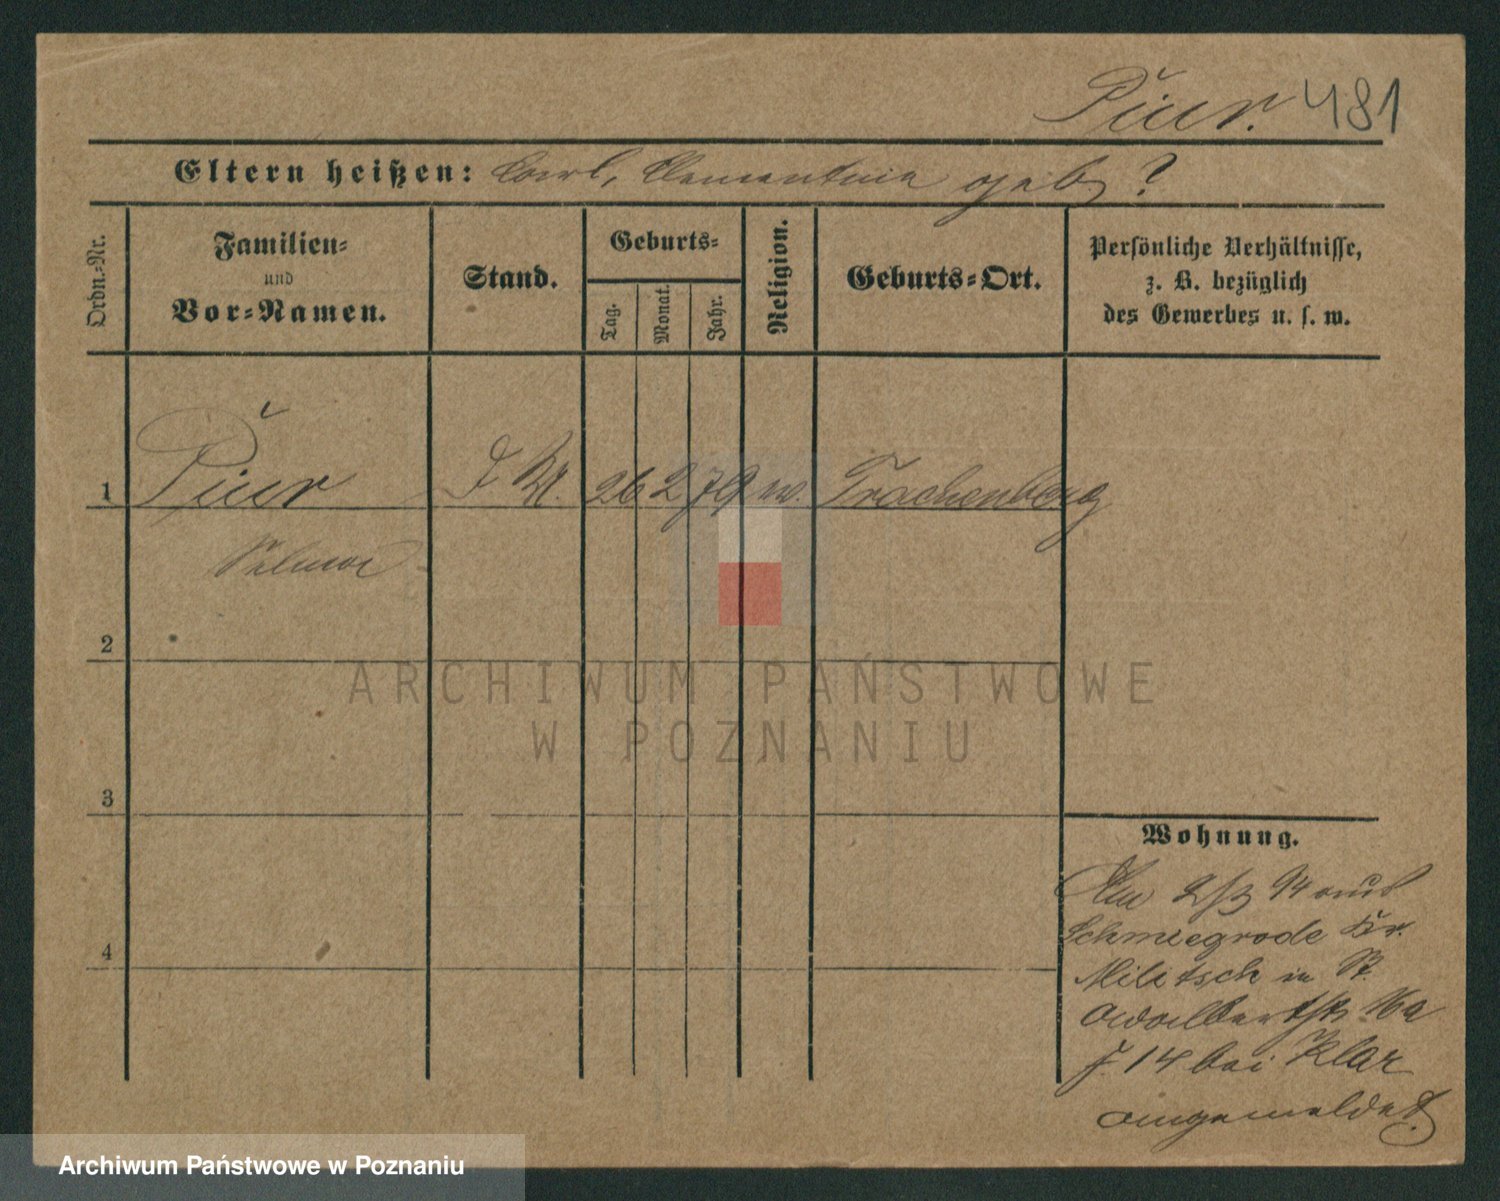 481
Eltern heißen: Carl, Clementine geb ?
Ordn.-Nr.
Familien-
und
Vor-Namen.
Stand.
Geburts-
Tag.
Monat.
Jahr.
Religion.
Geburts-Ort.
Persönliche Verhältnisse,
z. B. bezüglich
des Gewerbes u. s. w.
1 26 2 79 Trachenberg
Selma
2
3
4
Wohnung.
94 aus
Schmiegrode Kr.
Militsch in St.
Adalbertstr 16a
14 bei Klar
angemeldet.
ARCHIWUM PAŃSTWOWE
W POZNANIU
Archiwum Państwowe w Poznaniu